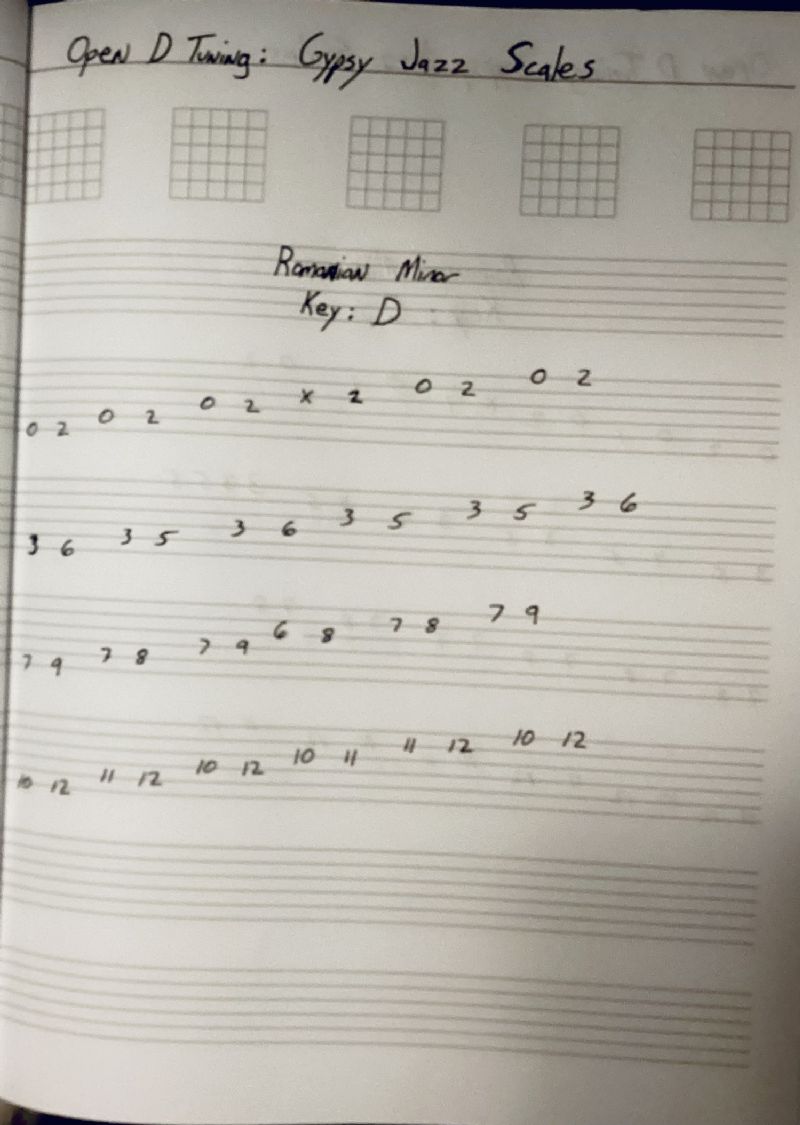 Open D Tuning: Gypsy Jazz Scales
Romanian Minor
Key: D
0 2 0 2 0 2 x 2 0 2 0 2
3 6 3 5 3 6 3 5 3 5 3 6
7 9 7 8 7 9 6 8 7 8 7 9
10 12 11 12 10 12 10 11 11 12 10 12